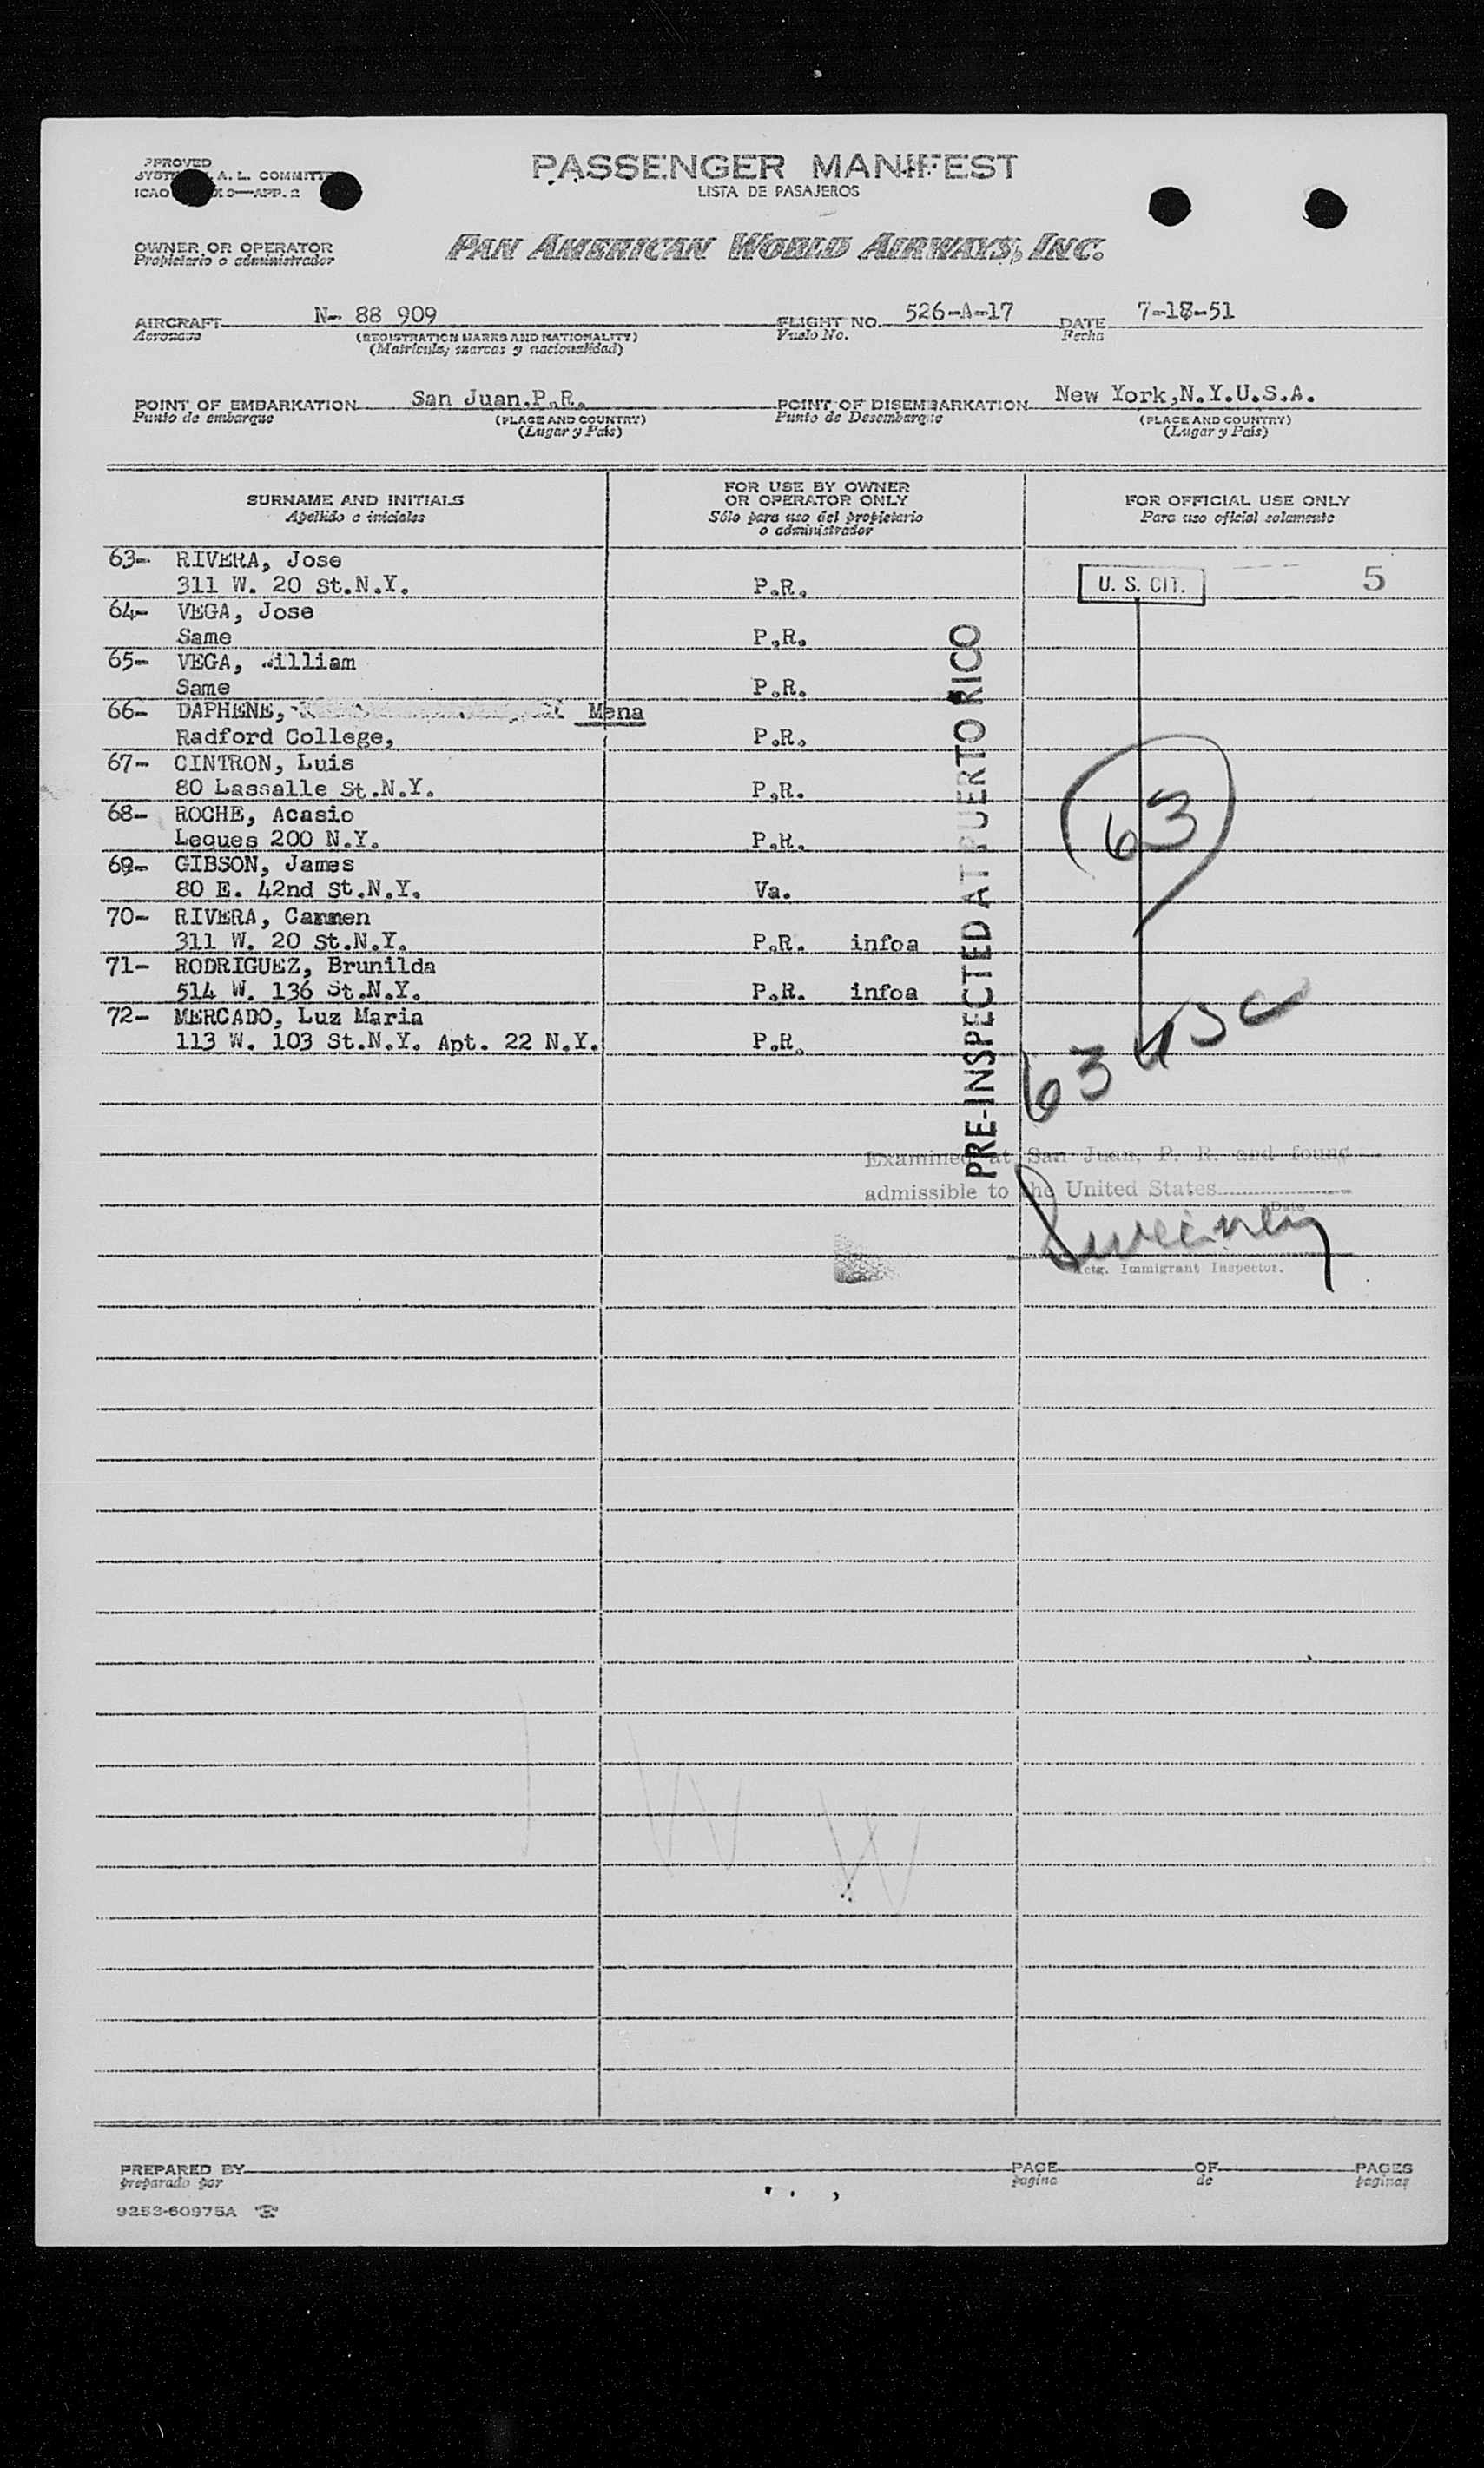 PASSENGER MANIFEST
LISTA DE PASAJEROS
OWNER OR OPERATOR
Propietario o administrador
PAN AMERICAN WORLD AIRWAYS, INC.
AIRCRAFT N- 88 909 FLIGHT NO. 526-A-17 DATE 7-18-51
Aeronave (REGISTRATION MARKS AND NATIONALITY) Vuelo No. Fecha
(Matrícula, marcas y nacionalidad)
POINT OF EMBARKATION San Juan.P.R. POINT OF DISEMBARKATION New York,N.Y.U.S.A.
Punto de embarque (PLACE AND COUNTRY) Punto de Desembarque (PLACE AND COUNTRY)
(Lugar y País) (Lugar y País)
SURNAME AND INITIALS FOR USE BY OWNER OR OPERATOR ONLY FOR OFFICIAL USE ONLY
Apellido e iniciales Sólo para uso del propietario o administrador Para uso oficial solamente
63- RIVERA, Jose
311 W. 20 St.N.Y. P.R. U. S. CIT. 5
64- VEGA, Jose
Same P.R.
65- VEGA, William
Same P.R.
66- DAPHENE, Mena
Radford College, P.R.
67- CINTRON, Luis
80 Lassalle St.N.Y. P.R.
68- ROCHE, Acasio
Leques 200 N.Y. P.R.
69- GIBSON, James
80 E. 42nd St.N.Y. Va.
70- RIVERA, Carmen
311 W. 20 St.N.Y. P.R. infoa
71- RODRIGUEZ, Brunilda
514 W. 136 St.N.Y. P.R. infoa
72- MERCADO, Luz Maria
113 W. 103 St.N.Y. Apt. 22 N.Y. P.R.
PRE-INSPECTED AT PUERTO RICO
63
63 USC
Examined at San Juan, P. R. and found
admissible to the United States
Date
Sweeney
Actg. Immigrant Inspector.
PREPARED BY PAGE OF PAGES
preparado por pagina de paginas
9253-60975A